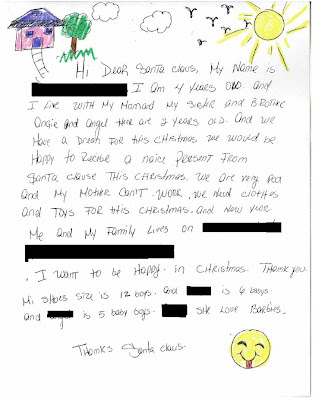 Hi Dear Santa claus, My Name is
I am 4 years old. and
I Live with My Momand My Sister and Brothe
Angie and Angel ther are 2 years old. And we
Have a Dream For this Christmas we would be
Happy to Recibe a naice Present From
Santa clause this Christmas. we are very Poor
and My Mother Can't work. we need clothes
and toys For this Christmas. and New year.
Me and My Family Lives on
. I want to be Happy in Christmas. Thank you.
Mi shoes size is 12 boys. and is 6 babys
and is 5 baby boys. She Love Barbies.
Thanks Santa claus.